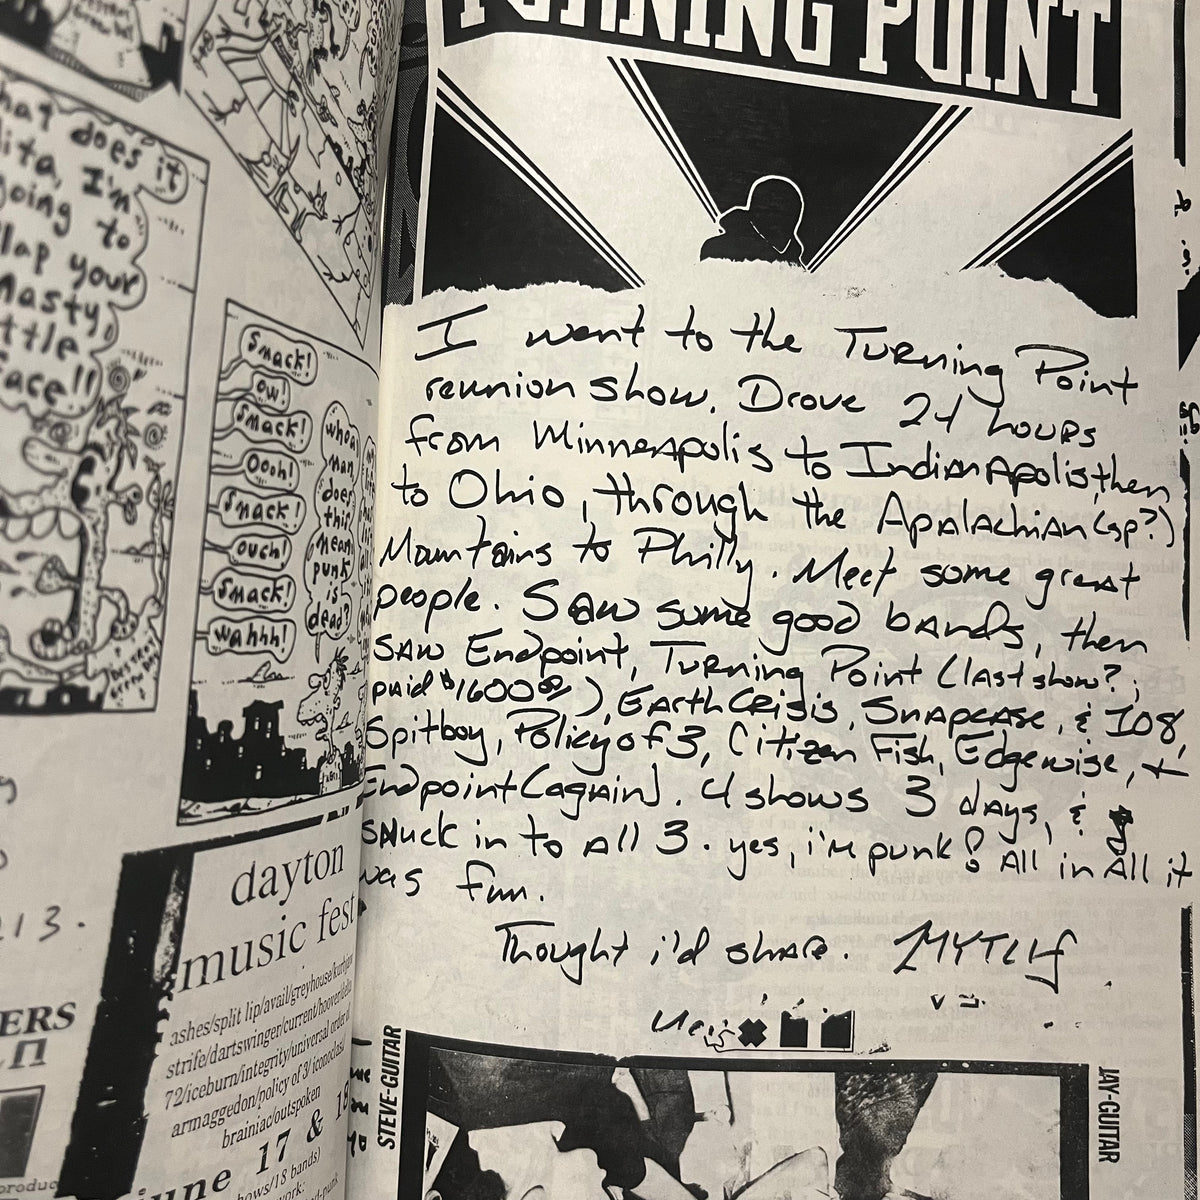 hat does it
lita, I'm
going to
lap your
nasty,
ttle
face!!
Smack!
ow!
Smack!
Oooh!
Smack!
ouch!
Smack!
wahhh!
whoa
man
does
this
mean
punk
is
dead?
213.
ERS
dayton
music fest
ashes/split lip/avail/greyhouse/kurbjaw
strife/dartswinger/current/hoover/delta
72/iceburn/integrity/universal order of
armaggedon/policy of 3/iconoclast
brainiac/outspoken
june 17 & 18
hows/18 bands)
work:
TURNING POINT
I went to the Turning Point
reunion show. Drove 24 hours
from Minneapolis to Indianapolis, then
to Ohio, through the Apalachian (sp?)
Mountains to Philly. Meet some great
people. Saw some good bands, then
saw Endpoint, Turning Point (last show?,
paid $1600.00), Earth Crisis, Snapcase, & 108,
Spitboy, Policy of 3, Citizen Fish, Edgewise, +
Endpoint (again). 4 shows 3 days, &
snuck in to all 3. yes, i'm punk! All in All it
was fun.
Thought i'd share.
STEVE-GUITAR
JAY-GUITAR